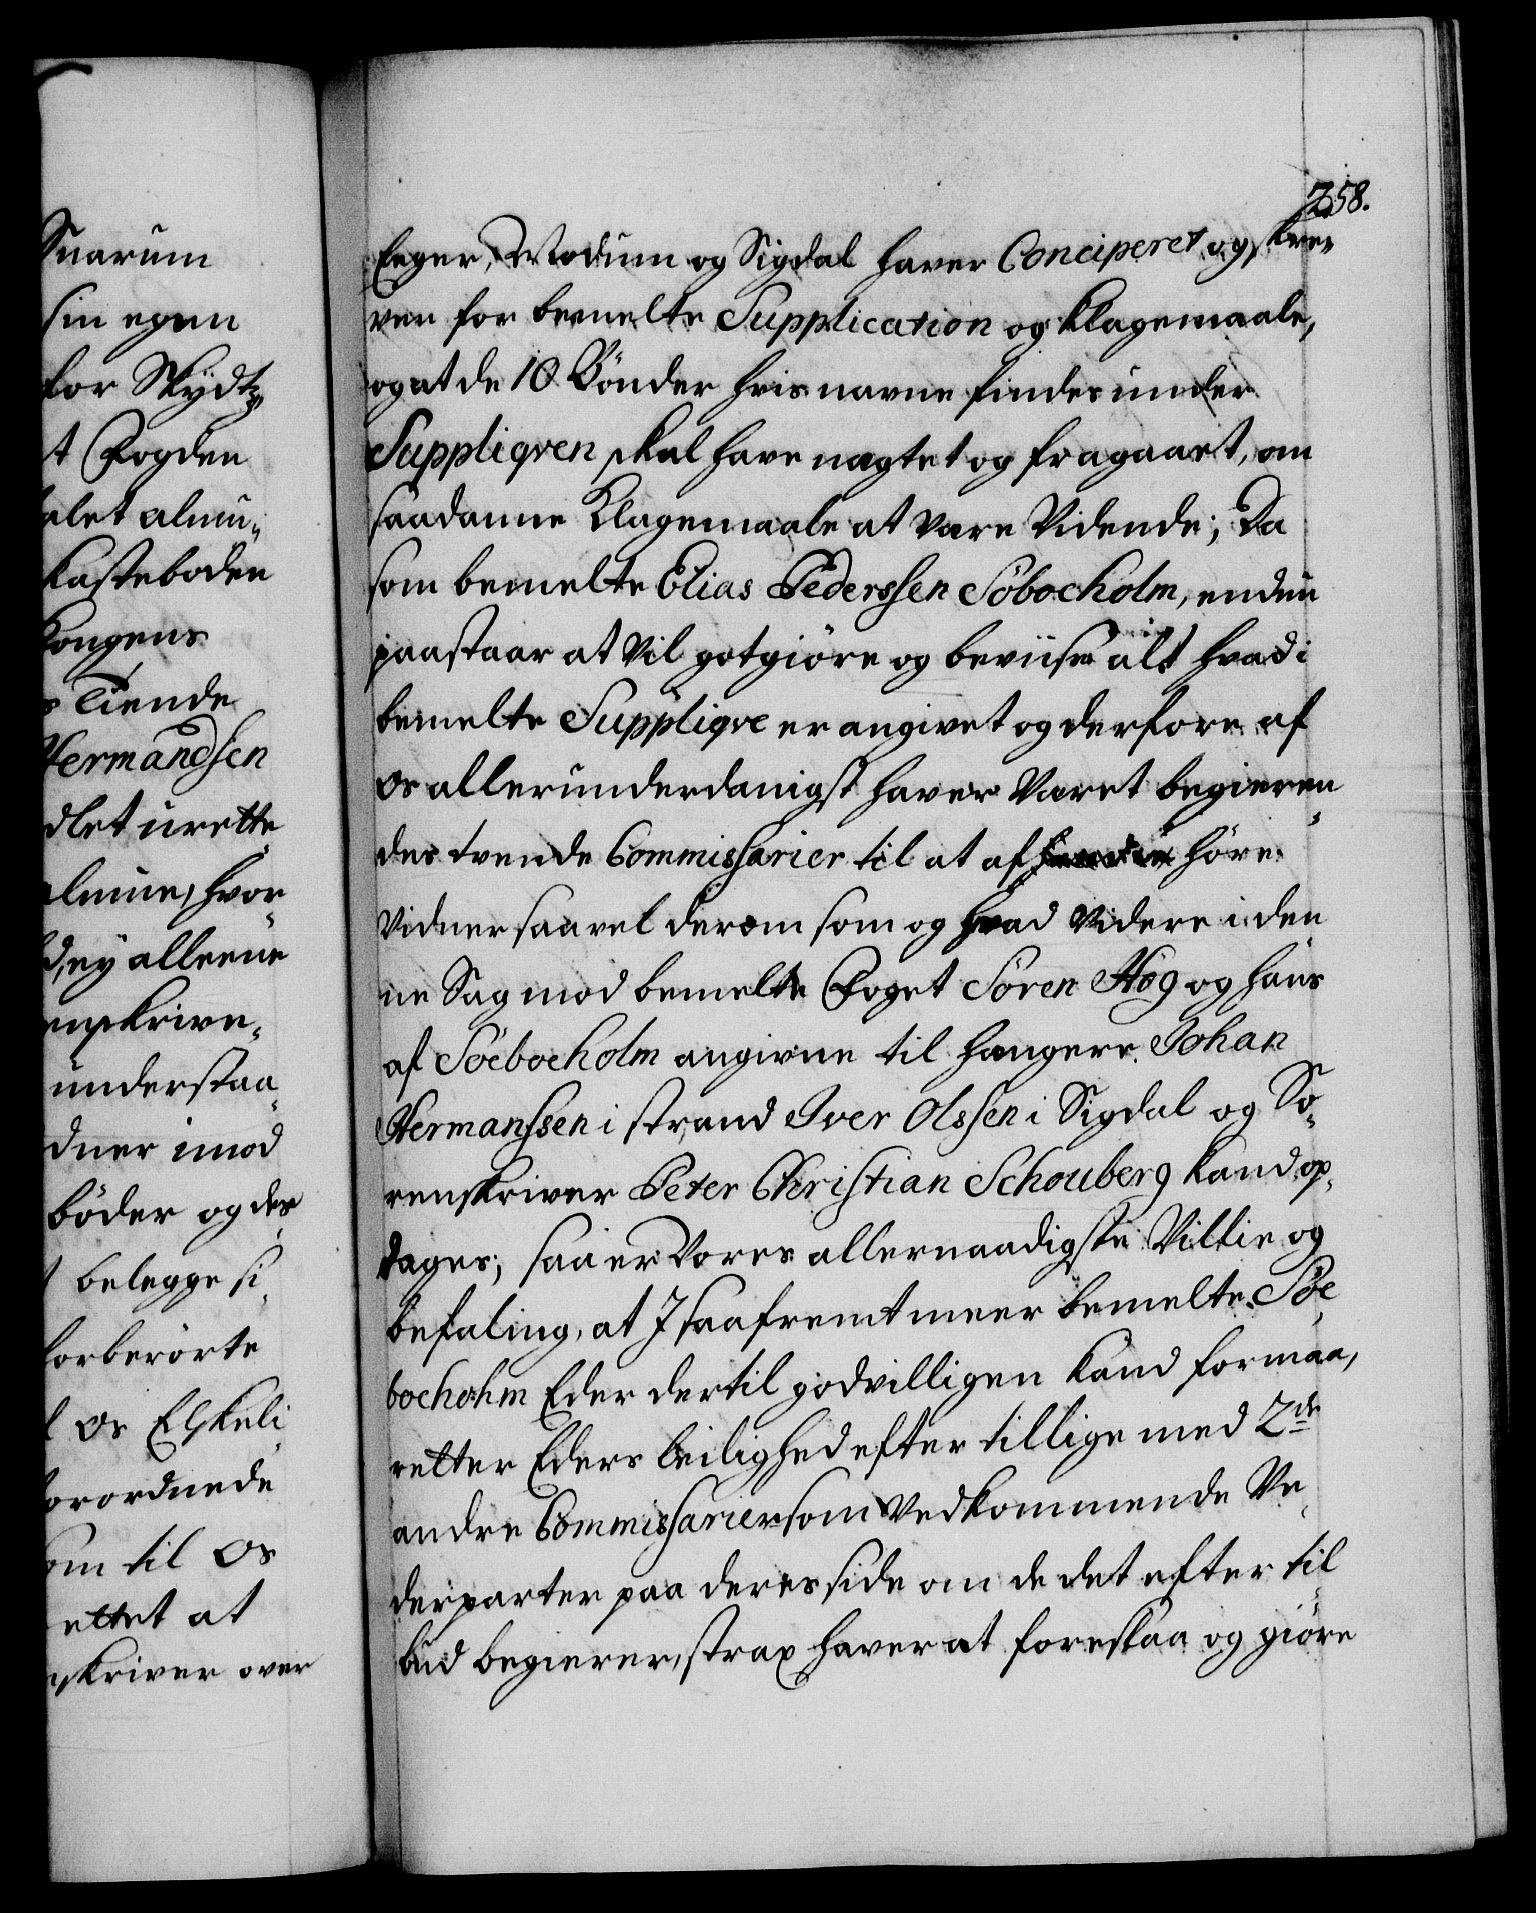 Suarum
sin egen
for Skydtz„
t Fogden
alet almu„
Kasteboden
Kongens
s Tiende
Hermandsen
dlet urette
almue, hvor
d, ey alleene
enskrive„
understaa„
dner imod
bøder og des
t belegge si„
forberørte
l os Elskeli„
forordnede
om til Os
ettet at
nskriver over
258.
Eeger, Modum og Sigdal haver Conciperet og skre„
ven for bemelte Supplication og Klagemaale,
og at de 10 Bönder hvis navne findes under
Suppliqven skal have nægtet og fragaaet, om
saadanne Klagemaale at være Vidende; Da
som bemelte Elias Pederssen Söboeholm, endnu
paastaar at vil godtgiöre og beviise alt hvad i
bemelte Supplique er angivet og derfore af
os allerunderdanigst haver været begieren„
des tvende Commissarier til at af höre
Vidner saavel derom som og hvad Videre i den
ne Sag mod bemelte Foget Sören Høg og hans
af Söeboeholm angivne til hængere Johan
Hermanssen i strand Iver Olssen i Sigdal og So„
renskriver Peter Christian Schouberg kand op„
dages; saa er Vores allernaadigste Villie og
befaling, at I saafremt meer bemelte Söe
boeholm Eder dertil godvilligen kand formaa,
retter Eders leilighed efter tillige med 2de
andre Commissarier som Vedkommende Ve„
derparter paa deres side om de det efter til
bud begierer, strax haver at forestaa og giöre